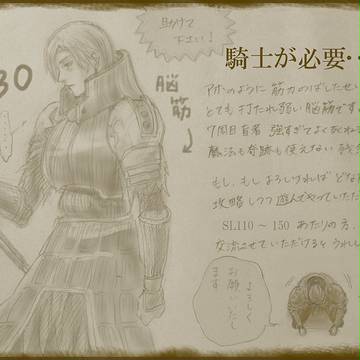 助けて
下さい!
騎士が必要・・
30
脳
筋
アホのように 筋力のばしたせい
とても打たれ弱い脳筋です
7周目盲者 強すぎてよく死ね
魔法も奇跡も使えない
もし、もしよろしければ どな
攻略しつつ 遊んでやっていただ
SL110 ~ 150 あたりの方、
交流させていただけると うれし
よろしく
お願いいたし
ます